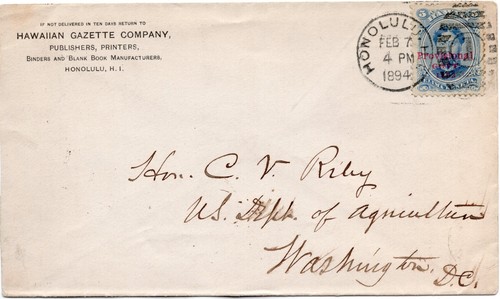 IF NOT DELIVERED IN TEN DAYS RETURN TO
HAWAIIAN GAZETTE COMPANY,
PUBLISHERS, PRINTERS,
BINDERS AND BLANK BOOK MANUFACTURERS.
HONOLULU, H. I.
HONOLULU
FEB 7
4 PM
1894
Provisional
Hon. C. V. Riley
U.S. Dept. of Agriculture
Washington.
D.C.